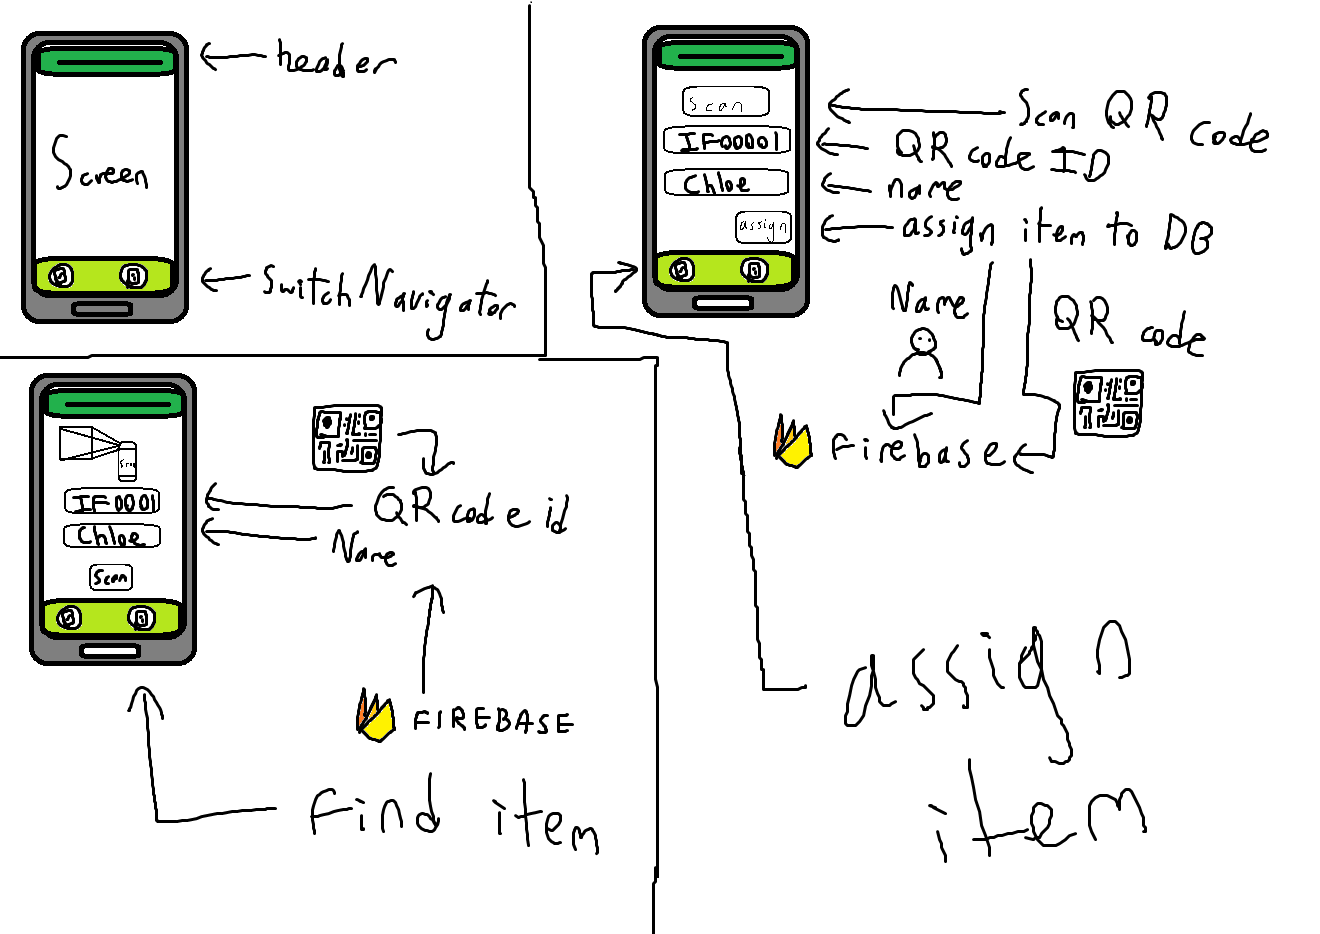 header
Screen
SwitchNavigator
Scan
IF00001
Chloe
assign
Scan QR code
QR code ID
name
assign item to DB
Name
QR code
Firebase
assign
item
Scan
IF0001
Chloe
Scan
QR code id
Name
FIREBASE
find item